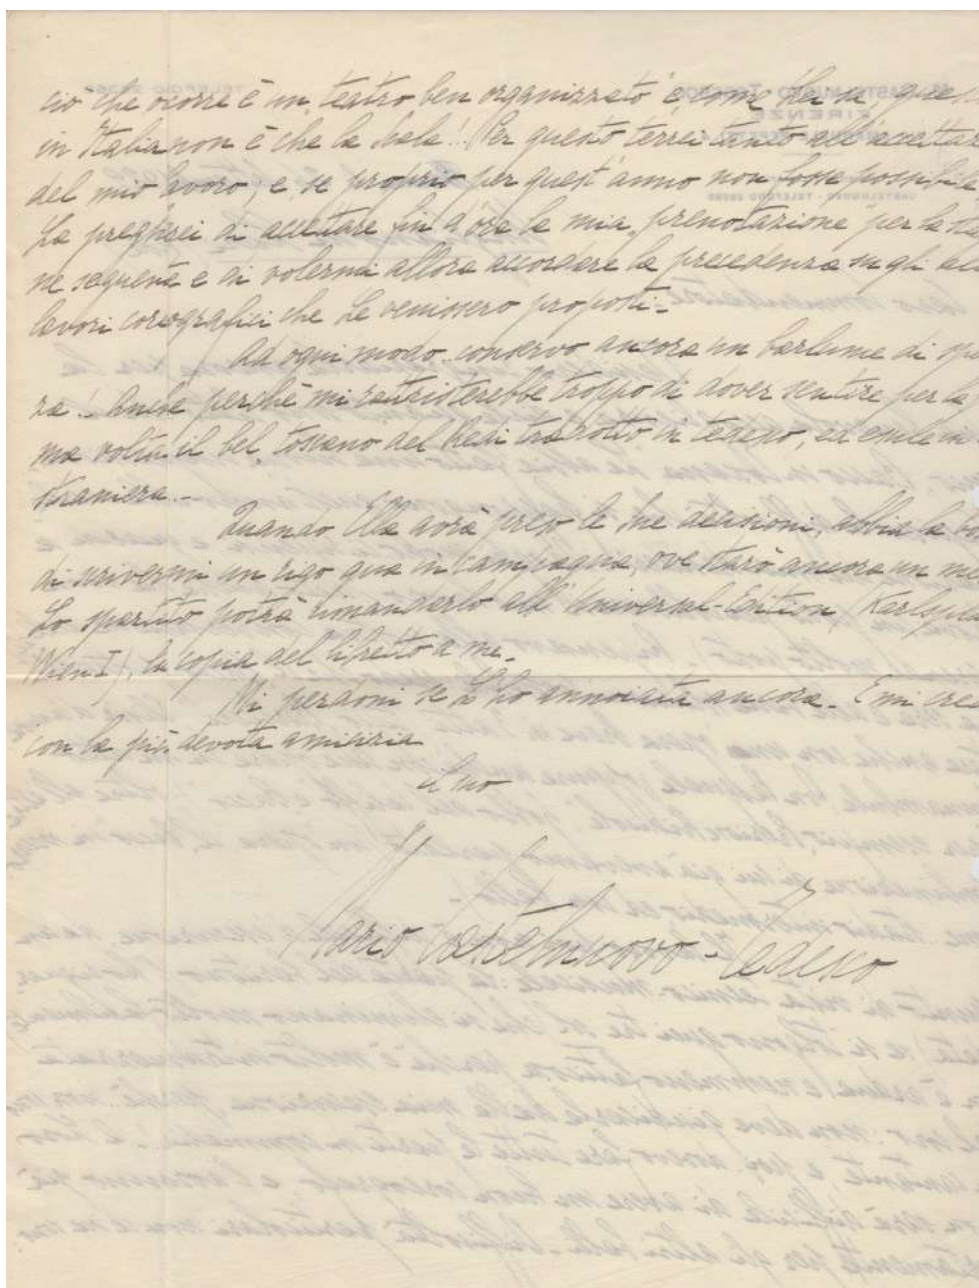 ciò che ocorre è un teatro ben organizzato e, come Lei sa,
in Italia non è che la Scala! Per questo terrei tanto all'accettaz
del mio lavoro; e se proprio per quest'anno non fosse possibile
La pregherei di accettare fin d'ora la mia "prenotazione" per la sta
ne seguente e di volermi allora accordare la precedenza su gli al
lavori coreografici che Le venissero proposti.
Ad ogni modo conservo ancora un barlume di spe
za! Anche perchè mi rattristerebbe troppo di dover sentire per la
ma volta il bel toscano del Redi tradotto in tedesco, ed in
straniera.
Quando Ella avrà preso le Sue decisioni, abbia la
di scrivermi un rigo qua in campagna, ove starò ancora un me
Lo spartito potrà rimandarlo all'Universal-Edition (Karlspla
Wien I), la copia del libretto a me.
Mi perdoni se L'ho annoiata ancora. E mi cre
con la più devota amicizia
il suo
Mario Castelnuovo-Tedesco